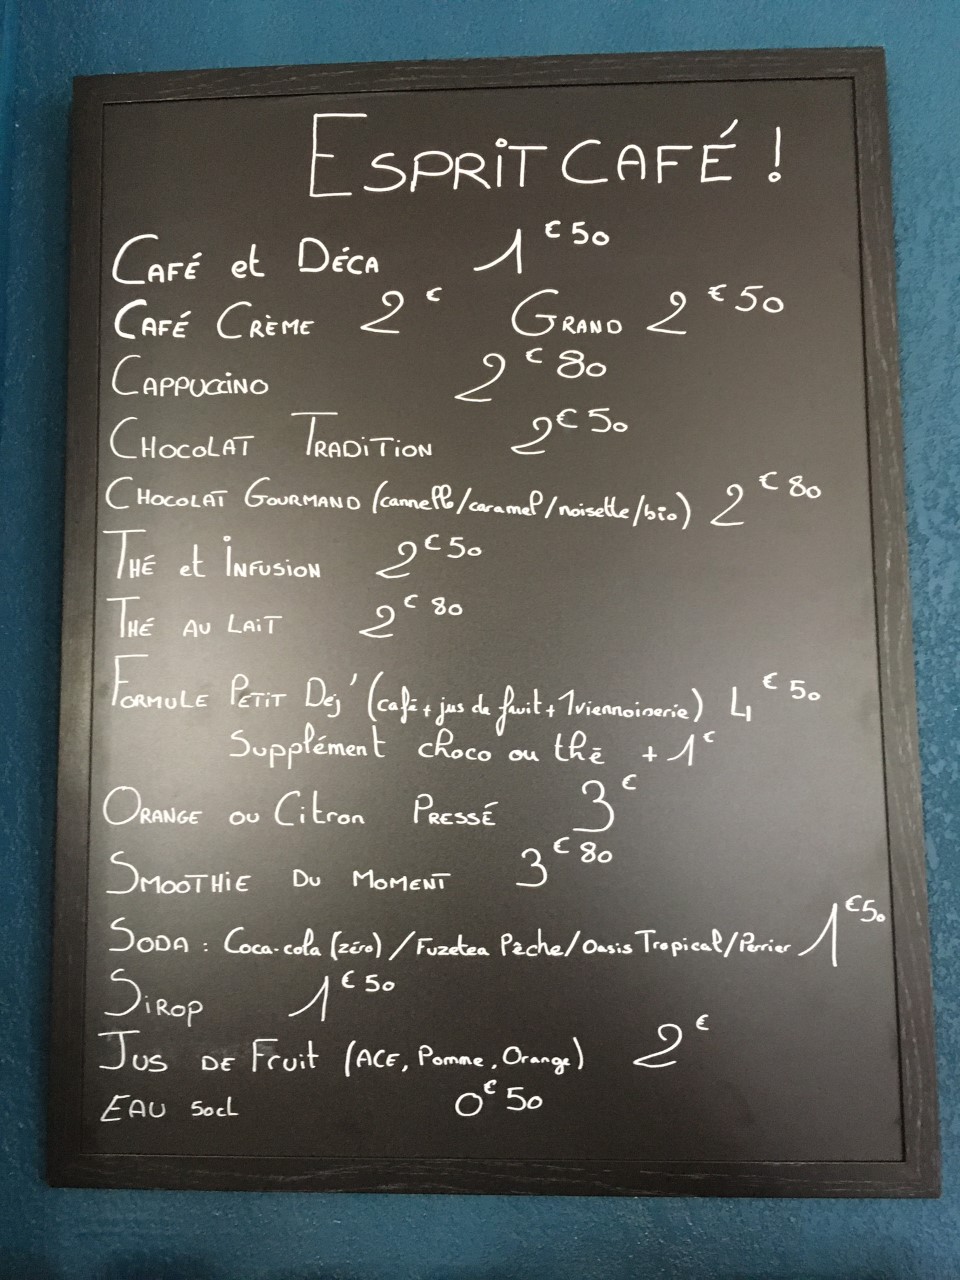 ESPRIT CAFÉ !
CAFÉ et DÉCA 1€50
CAFÉ CRÈME 2€ GRAND 2€50
CAPPUCCINO 2€80
CHOCOLAT TRADITION 2€50
CHOCOLAT GOURMAND (cannelle/caramel/noisette/bio) 2€80
THÉ et INFUSION 2€50
THÉ AU LAIT 2€80
FORMULE PETIT DEJ' (café + jus de fruit + 1 viennoiserie) 4€50
Supplément choco ou thé + 1€
ORANGE ou Citron PRESSÉ 3€
SMOOTHIE DU MOMENT 3€80
SODA : Coca-cola (zéro) / Fuzetea Pêche / Oasis Tropical / Perrier 1€50
SIROP 1€50
JUS DE Fruit (ACE, Pomme, Orange) 2€
EAU 50cL 0€50